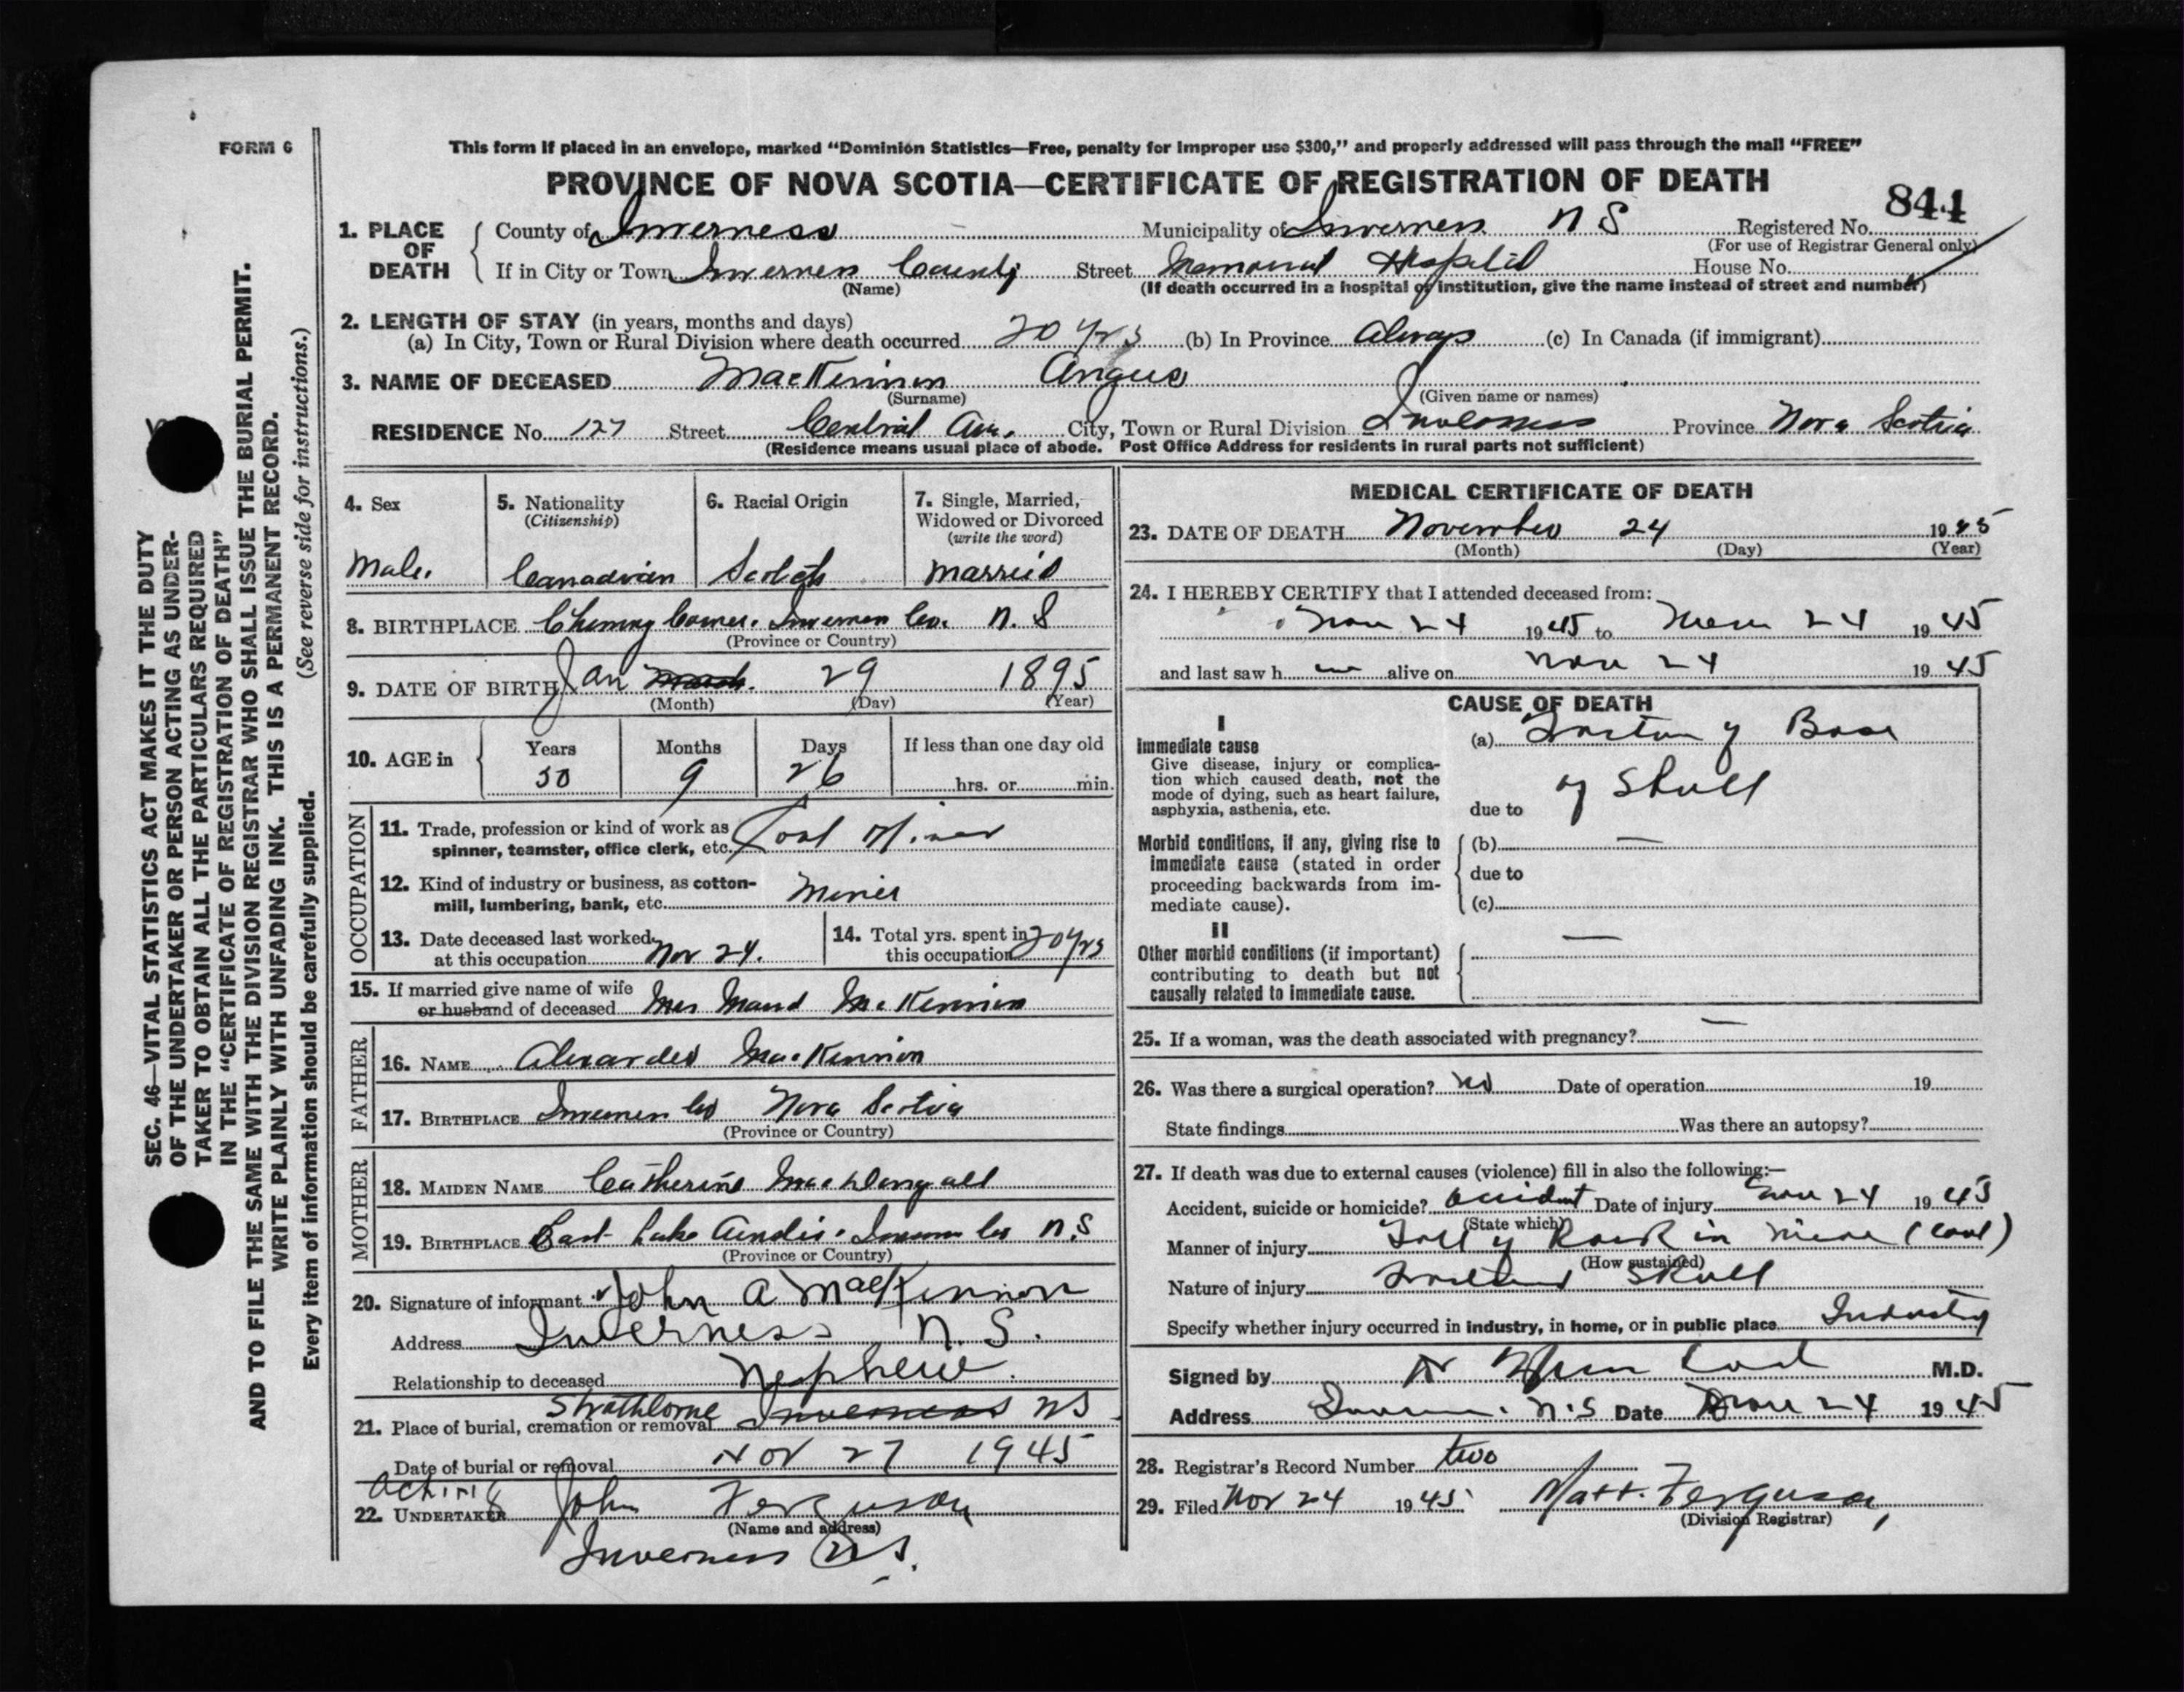 FORM 6
This form if placed in an envelope, marked “Dominion Statistics—Free, penalty for improper use $300,” and properly addressed will pass through the mail “FREE”
PROVINCE OF NOVA SCOTIA—CERTIFICATE OF REGISTRATION OF DEATH
844
1. PLACE OF DEATH
County of Inverness Municipality of Inverness N S Registered No.
(For use of Registrar General only)
If in City or Town Inverness County Street Memorial Hospital House No.
(Name) (If death occurred in a hospital or institution, give the name instead of street and number)
2. LENGTH OF STAY (in years, months and days)
(a) In City, Town or Rural Division where death occurred 20 yrs (b) In Province Always (c) In Canada (if immigrant)
3. NAME OF DECEASED MacKinnon Angus
(Surname) (Given name or names)
RESIDENCE No. 127 Street Central Ave. City, Town or Rural Division Inverness Province Nova Scotia
(Residence means usual place of abode. Post Office Address for residents in rural parts not sufficient)
4. Sex
Male.
5. Nationality
(Citizenship)
Canadian
6. Racial Origin
Scotch
7. Single, Married, Widowed or Divorced
(write the word)
Married
8. BIRTHPLACE Inverness Co. N. S
(Province or Country)
9. DATE OF BIRTH Jan March. 29 1895
(Month) (Day) (Year)
10. AGE in
Years Months Days If less than one day old
50 9 26 hrs. or min.
OCCUPATION
11. Trade, profession or kind of work as
spinner, teamster, office clerk, etc. Coal Miner
12. Kind of industry or business, as cotton-
mill, lumbering, bank, etc. Miner
13. Date deceased last worked
at this occupation Nov 24.
14. Total yrs. spent in
this occupation 20 yrs
15. If married give name of wife
or husband of deceased Mrs Maud McKinnon
FATHER
16. NAME Alexander MacKinnon
17. BIRTHPLACE Inverness Co Nova Scotia
(Province or Country)
MOTHER
18. MAIDEN NAME Catherine MacDougall
19. BIRTHPLACE East Lake Ainslie. Inverness Co N.S
(Province or Country)
20. Signature of informant John A MacKinnon
Address Inverness N. S.
Relationship to deceased Nephew.
21. Place of burial, cremation or removal Strathlorne Inverness NS
Date of burial or removal Nov 27 1945
Acting
22. UNDERTAKER John Ferguson
(Name and address)
Inverness N.S.
MEDICAL CERTIFICATE OF DEATH
23. DATE OF DEATH November 24 1945
(Month) (Day) (Year)
24. I HEREBY CERTIFY that I attended deceased from:
Nov 24 1945 to Nov 24 1945
and last saw h im alive on Nov 24 1945
CAUSE OF DEATH
I
Immediate cause
Give disease, injury or complica-
tion which caused death, not the
mode of dying, such as heart failure,
asphyxia, asthenia, etc.
(a) Fracture of Base
of Skull
due to
Morbid conditions, if any, giving rise to
immediate cause (stated in order
proceeding backwards from im-
mediate cause).
(b) —
due to
(c)
II
Other morbid conditions (if important)
contributing to death but not
causally related to immediate cause.
—
25. If a woman, was the death associated with pregnancy? —
26. Was there a surgical operation? No Date of operation 19
State findings Was there an autopsy?
27. If death was due to external causes (violence) fill in also the following:—
Accident, suicide or homicide? Accident Date of injury Nov 24 1945
(State which)
Manner of injury Fall of Rock in mine (coal)
(How sustained)
Nature of injury Fractured Skull
Specify whether injury occurred in industry, in home, or in public place Industry
Signed by M.D.
Address N.S Date Nov 24 1945
28. Registrar's Record Number two
29. Filed Nov 24 1945 Matt. Ferguson,
(Division Registrar)
SEC. 46—VITAL STATISTICS ACT MAKES IT THE DUTY
OF THE UNDERTAKER OR PERSON ACTING AS UNDER-
TAKER TO OBTAIN ALL THE PARTICULARS REQUIRED
IN THE “CERTIFICATE OF REGISTRATION OF DEATH”
AND TO FILE THE SAME WITH THE DIVISION REGISTRAR WHO SHALL ISSUE THE BURIAL PERMIT.
WRITE PLAINLY WITH UNFADING INK. THIS IS A PERMANENT RECORD.
Every item of information should be carefully supplied. (See reverse side for instructions.)